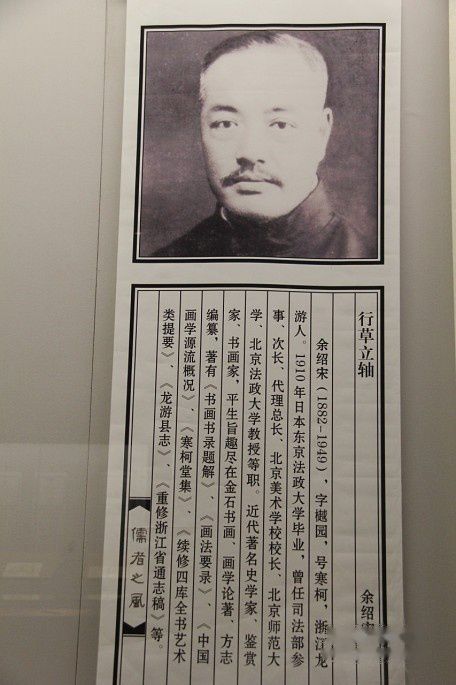 行草立轴 余绍宋
余绍宋（1882-1949），字樾园，号寒柯，浙江龙
游人。1910年日本东京法政大学毕业，曾任司法部参
事、次长、代理总长、北京美术学校校长、北京师范大
学、北京法政大学教授等职。近代著名史学家、鉴赏
家、书画家，平生旨趣尽在金石书画、画学论著、方志
编纂，著有《书画书录题解》、《画法要录》、《中国
画学源流概况》、《寒柯堂集》、《续修四库全书艺术
类提要》、《龙游县志》、《重修浙江省通志稿》等。
儒者之风